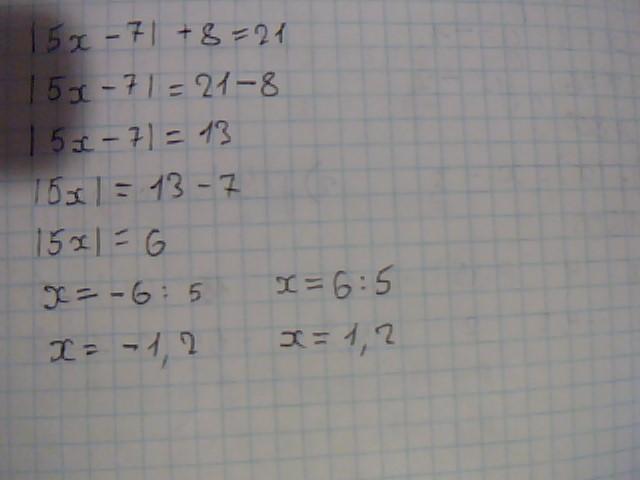 |5x - 7| + 8 = 21
|5x - 7| = 21 - 8
|5x - 7| = 13
|5x| = 13 - 7
|5x| = 6
x = -6 : 5 x = 6 : 5
x = -1,2 x = 1,2